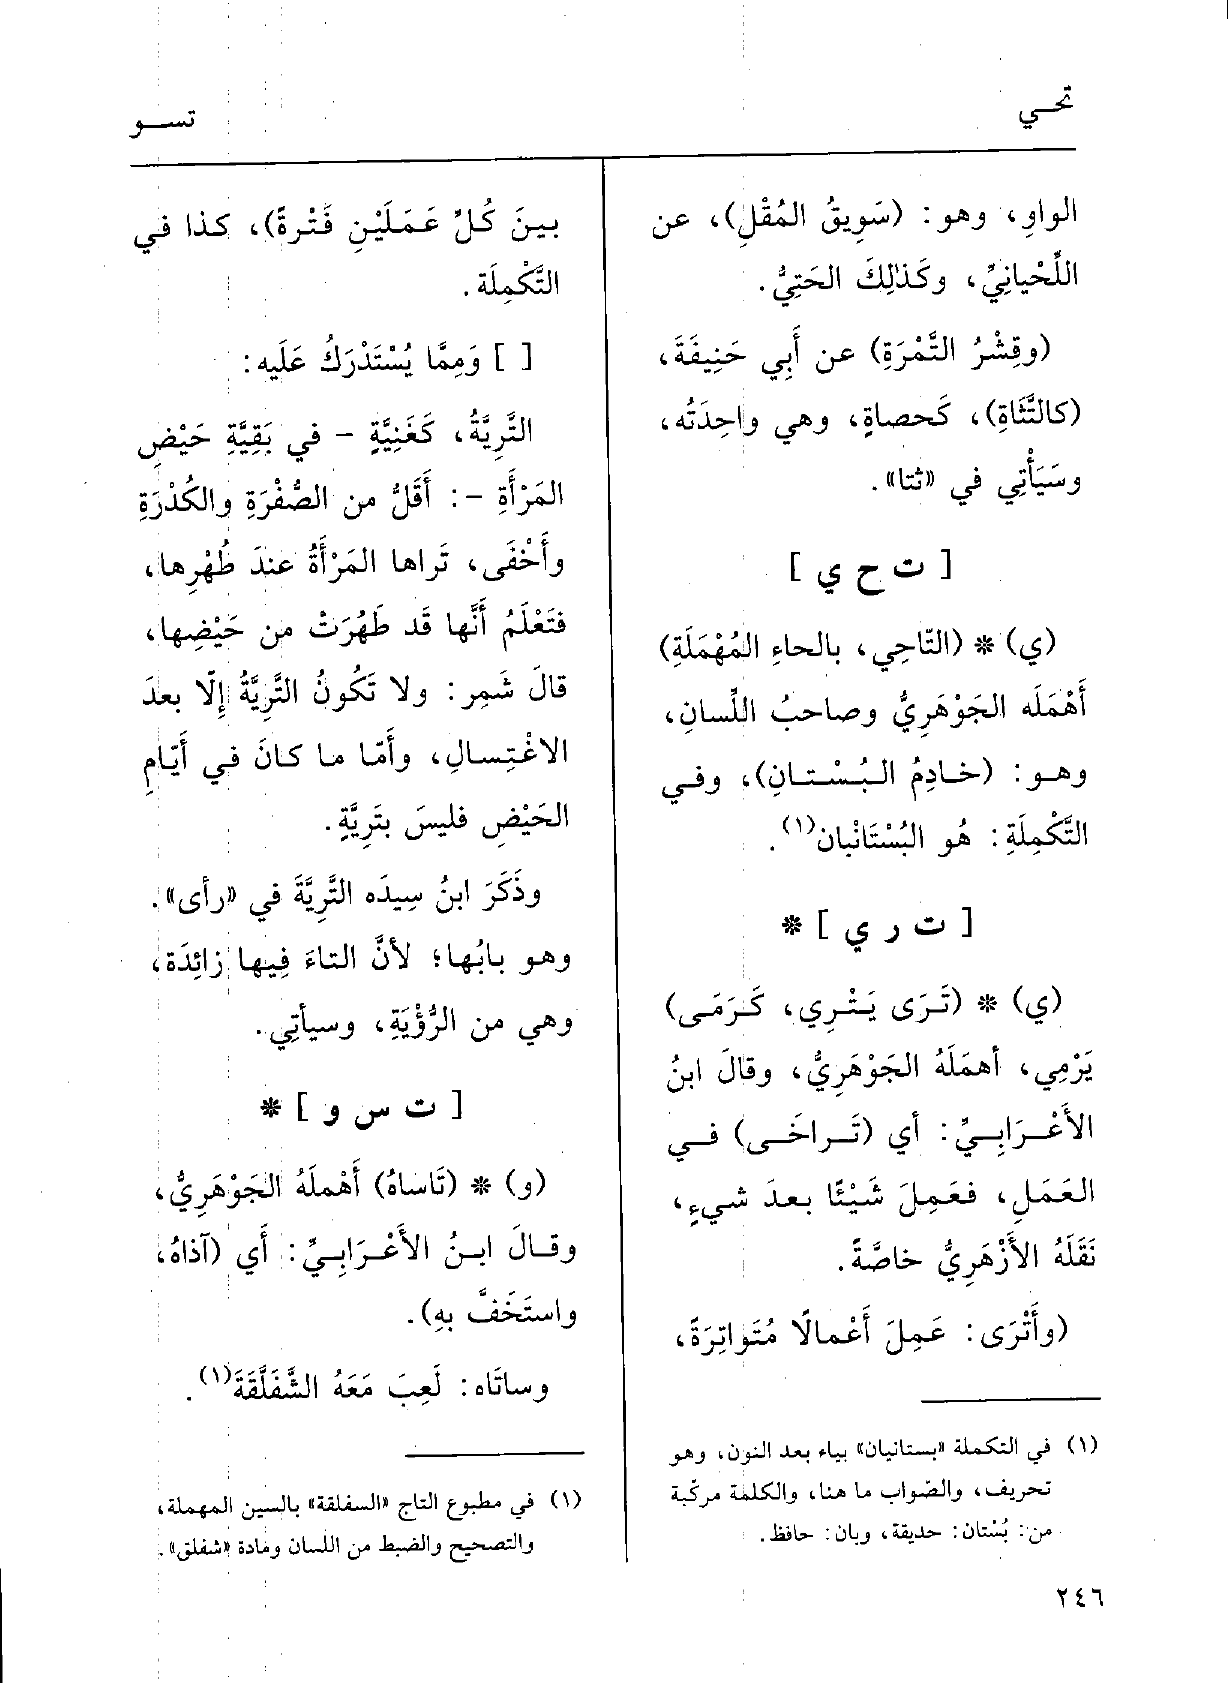 تحـي
تســو
الواوِ، وهو: (سَوِيقُ المُقْلِ)، عن
اللِّحْيانِيِّ، وكَذٰلِكَ الحَتِيُّ.
(وقِشْرُ التَّمْرَةِ) عن أَبِي حَنِيفَةَ،
(كالتَّثَاةِ)، كَحصاةٍ، وهي واحِدَتُه،
وسَيَأْتِي في «ثتا».
[ ت ح ي ]
(ي) * (التّاحِي، بالحاءِ المُهْمَلَةِ)
أَهْمَلَه الجَوْهَرِيُّ وصاحبُ اللّسانِ،
وهـو: (خـادِمُ البُسْتـانِ)، وفـي
التَّكْمِلَةِ: هُو البُسْتَانْبان(١).
[ ت ر ي ] *
(ي) * (تَـرَى يَتْـرِي، كَـرَمَـى)
يَرْمِي، أهمَلَهُ الجَوْهَرِيُّ، وقالَ ابنُ
الأَعْـرَابِـيِّ: أي (تَـراخَـى) فـي
العَمَلِ، فعَمِلَ شَيْئًا بعدَ شيءٍ،
نَقَلَهُ الأَزْهَرِيُّ خاصَّةً.
(وأَتْرَى: عَمِلَ أَعْمالًا مُتَواتِرَةً،
(١) في التكملة «بستانيان» بياء بعد النون، وهو
تحريف، والصّواب ما هنا، والكلمة مركّبة
من: بُسْتان: حديقة، وبان: حافظ.
بـينَ كُلِّ عَمَلَيْنِ فَتْرةً)، كذا في
التَّكْمِلَة.
[ ] وَمِمَّا يُسْتَدْرَكُ عَلَيه:
التَّرِيَّةُ، كَغَنِيَّةٍ - في بَقِيَّةِ حَيْضِ
المَرْأَةِ -: أَقَلُّ من الصُّفْرَةِ والكُدْرَةِ
وأَخْفَى، تَراها المَرْأَةُ عندَ طُهْرِها،
فتَعْلَمُ أَنَّها قَد طَهُرَتْ من حَيْضِها،
قالَ شَمِر: ولا تَكُونُ التَّرِيَّةُ إِلّا بعدَ
الاغْتِسالِ، وأَمّا ما كانَ في أَيّامِ
الحَيْضِ فليسَ بتَرِيَّةٍ.
وذَكَرَ ابنُ سِيدَه التَّرِيَّةَ في «رأى».
وهو بابُها؛ لأنَّ التاءَ فِيها زائِدَة،
وهي من الرُّؤْيَةِ، وسيأتِي.
[ ت س و ] *
(و) * (تَاساهُ) أَهْملَهُ الجَوْهَرِيُّ،
وقـالَ ابـنُ الأَعْـرَابِـيِّ: أَي (آذاهُ،
واستَخَفَّ بهِ).
وساتَاه: لَعِبَ مَعَهُ الشَّفَلَّقَةَ(١).
(١) في مطبوع التاج «السفلقة» بالسين المهملة،
والتصحيح والضبط من اللسان ومادة «شفلق».
٢٤٦